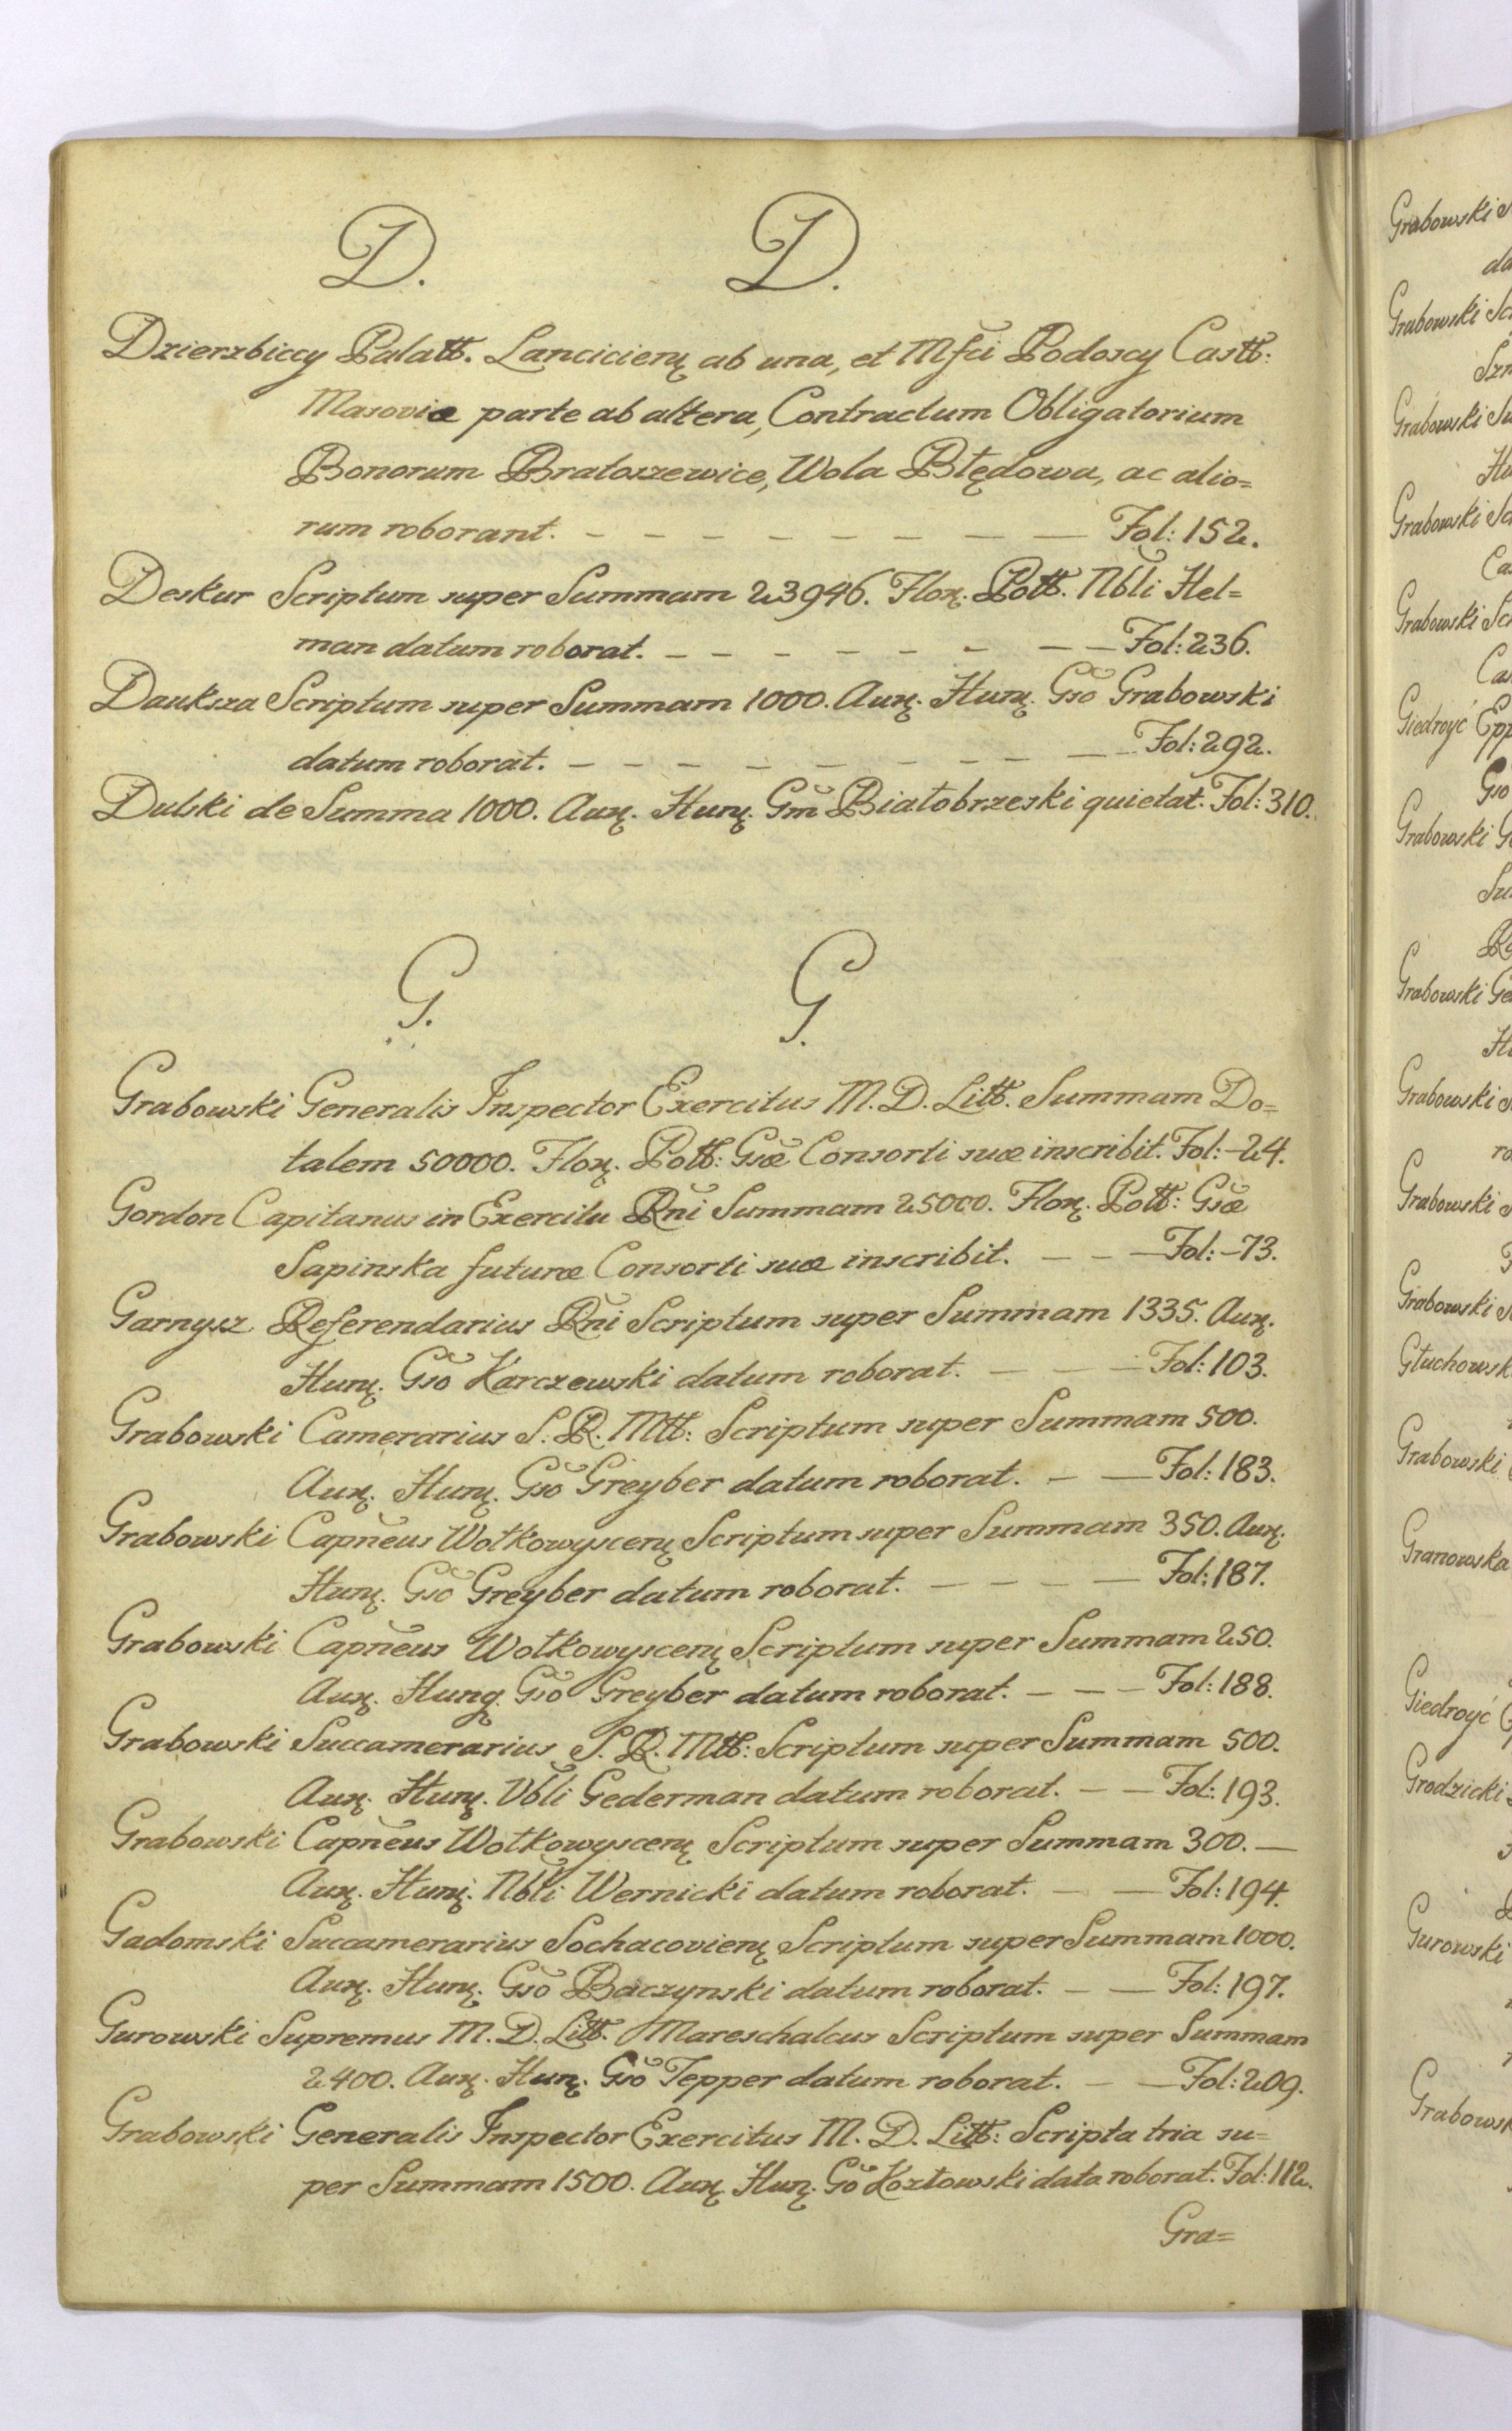 D. D.
Dzierzbiccy Palatt. Lancicien: ab una, et Mfci Podoscy Castt:
Masoviæ parte ab altera, Contractum Obligatorium
Bonorum Bratoszewice, Wola Błędowa, ac alio=
rum roborant. - - - - - - - - Fol: 152.
Deskur Scriptum super Summam 23946. Flor. Poll. Nbli Hel=
man datum roborat. - - - - - - - - Fol: 236.
Dauksza Scriptum super Summam 1000. Aur. Hun. Gso Grabowski
datum roborat. - - - - - - - - - Fol: 292.
Dulski de Summa 1000. Aur. Hun. Gm Białobrzeski quietat. Fol: 310.
G. G.
Grabowski Generalis Inspector Exercitus M. D. Litt. Summam Do=
talem 50000. Flor. Poll: Gsæ Consorti suæ inscribit. Fol: -24.
Gordon Capitanus in Exercitu Rni Summam 25000. Flor. Poll: Gsæ
Sapinska futuræ Consorti suæ inscribit. - - - Fol: -73.
Garnysz Referendarius Rni Scriptum super Summam 1335. Aur.
Hun. Gso Karczewski datum roborat. - - - Fol: 103.
Grabowski Camerarius S. R. Mtt: Scriptum super Summam 500.
Aur. Hun. Gso Greyber datum roborat. - - Fol: 183.
Grabowski Capneus Wołkowyscen Scriptum super Summam 350. Aur.
Hun. Gso Greyber datum roborat. - - - - Fol: 187.
Grabowski Capneus Wołkowyscen Scriptum super Summam 250.
Aur. Hung. Gso Greyber datum roborat. - - - Fol: 188.
Grabowski Succamerarius S. R. Mtt: Scriptum super Summam 500.
Aur. Hun. Vbli Gederman datum roborat. - - Fol: 193.
Grabowski Capneus Wołkowyscen Scriptum super Summam 300. -
Aur. Hun. Nbli Wernicki datum roborat. - - Fol: 194.
Gadomski Succamerarius Sochacovien Scriptum super Summam 1000.
Aur. Hun. Gso Baczynski datum roborat. - - Fol: 197.
Gurowski Supremus M. D. Litt. Mareschalcus Scriptum super Summam
2400. Aur. Hun. Gso Tepper datum roborat. - - Fol: 209.
Grabowski Generalis Inspector Exercitus M. D. Litt: Scripta tria su=
per Summam 1500. Aur. Hun. Go Kozłowski data roborat. Fol: 112.
Gra=
Grabowski
Grabowski
Grabowski
Grabowski
Grabowski
Giedroyć
Gso
Grabowski
Grabowski
Grabowski
Grabowski
Grabowski
Grabowski
Granowska
Giedroyć
Grodzicki
Gurowski